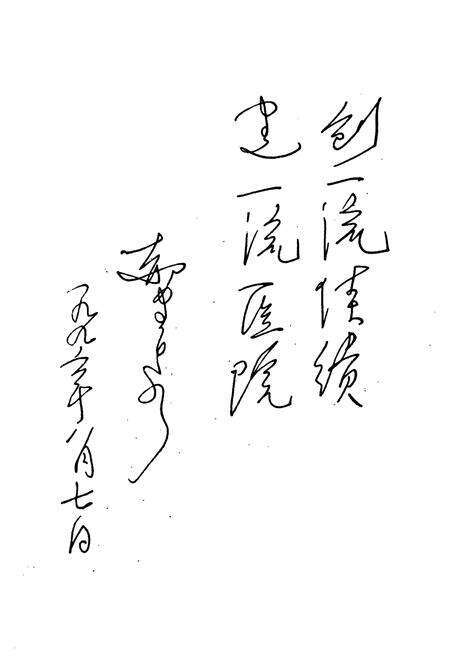 创一流佳绩
建一流医院
一九九六年八月七日